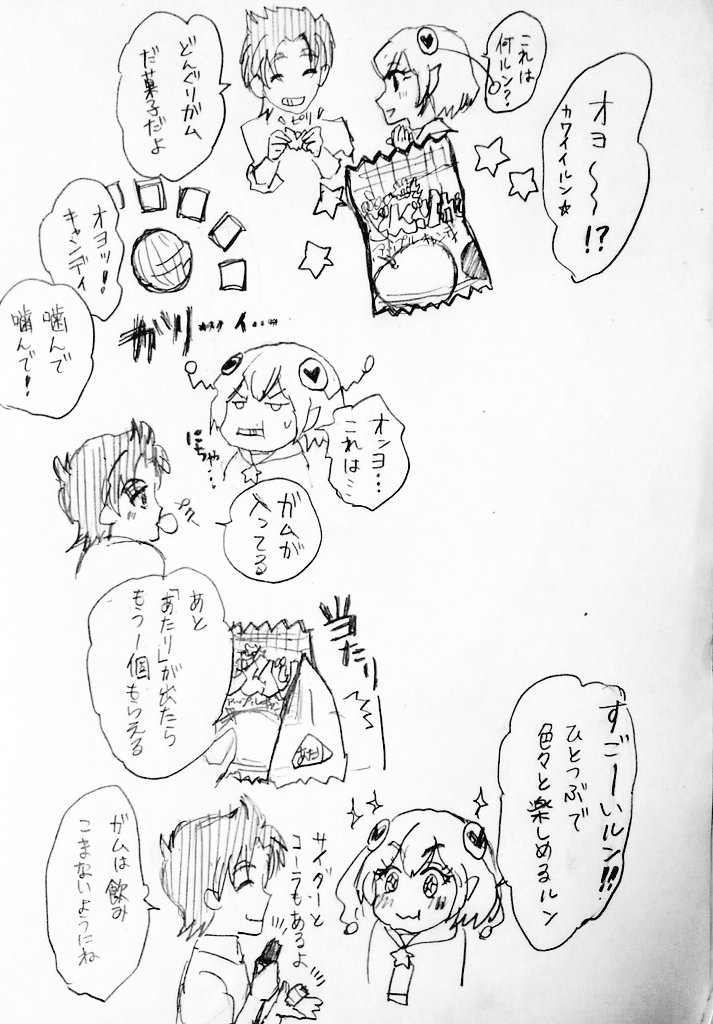 これは
何ルン?
どんぐりガム
だ菓子だよ
ピリ
オヨ〜〜!?
カワイイルン☆
オヨッ!
キャンディ
噛んで
噛んで!
ガリ……ィ……
オンヨ…
これは…
にちゃ…
ガムが
入ってる
プク
あと
「あたり」が出たら
もう一個もらえる
あたり
あたり
すごーいルン!!
ひとつぶで
色々と楽しめるルン
サイダーと
コーラもあるよ
ガムは飲み
こまないようにね